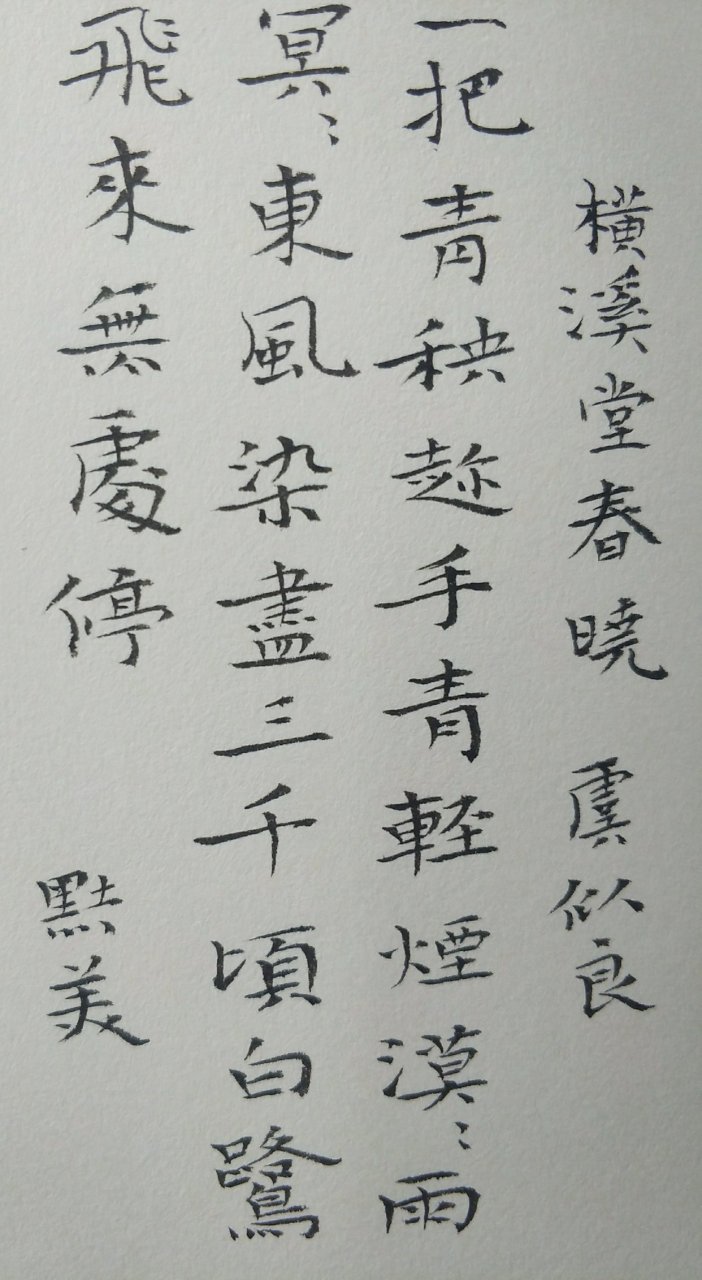 橫溪堂春曉 虞似良
一把青秧趂手青輕煙漠〻雨
冥〻東風染盡三千頃白鷺
飛來無處停 點美